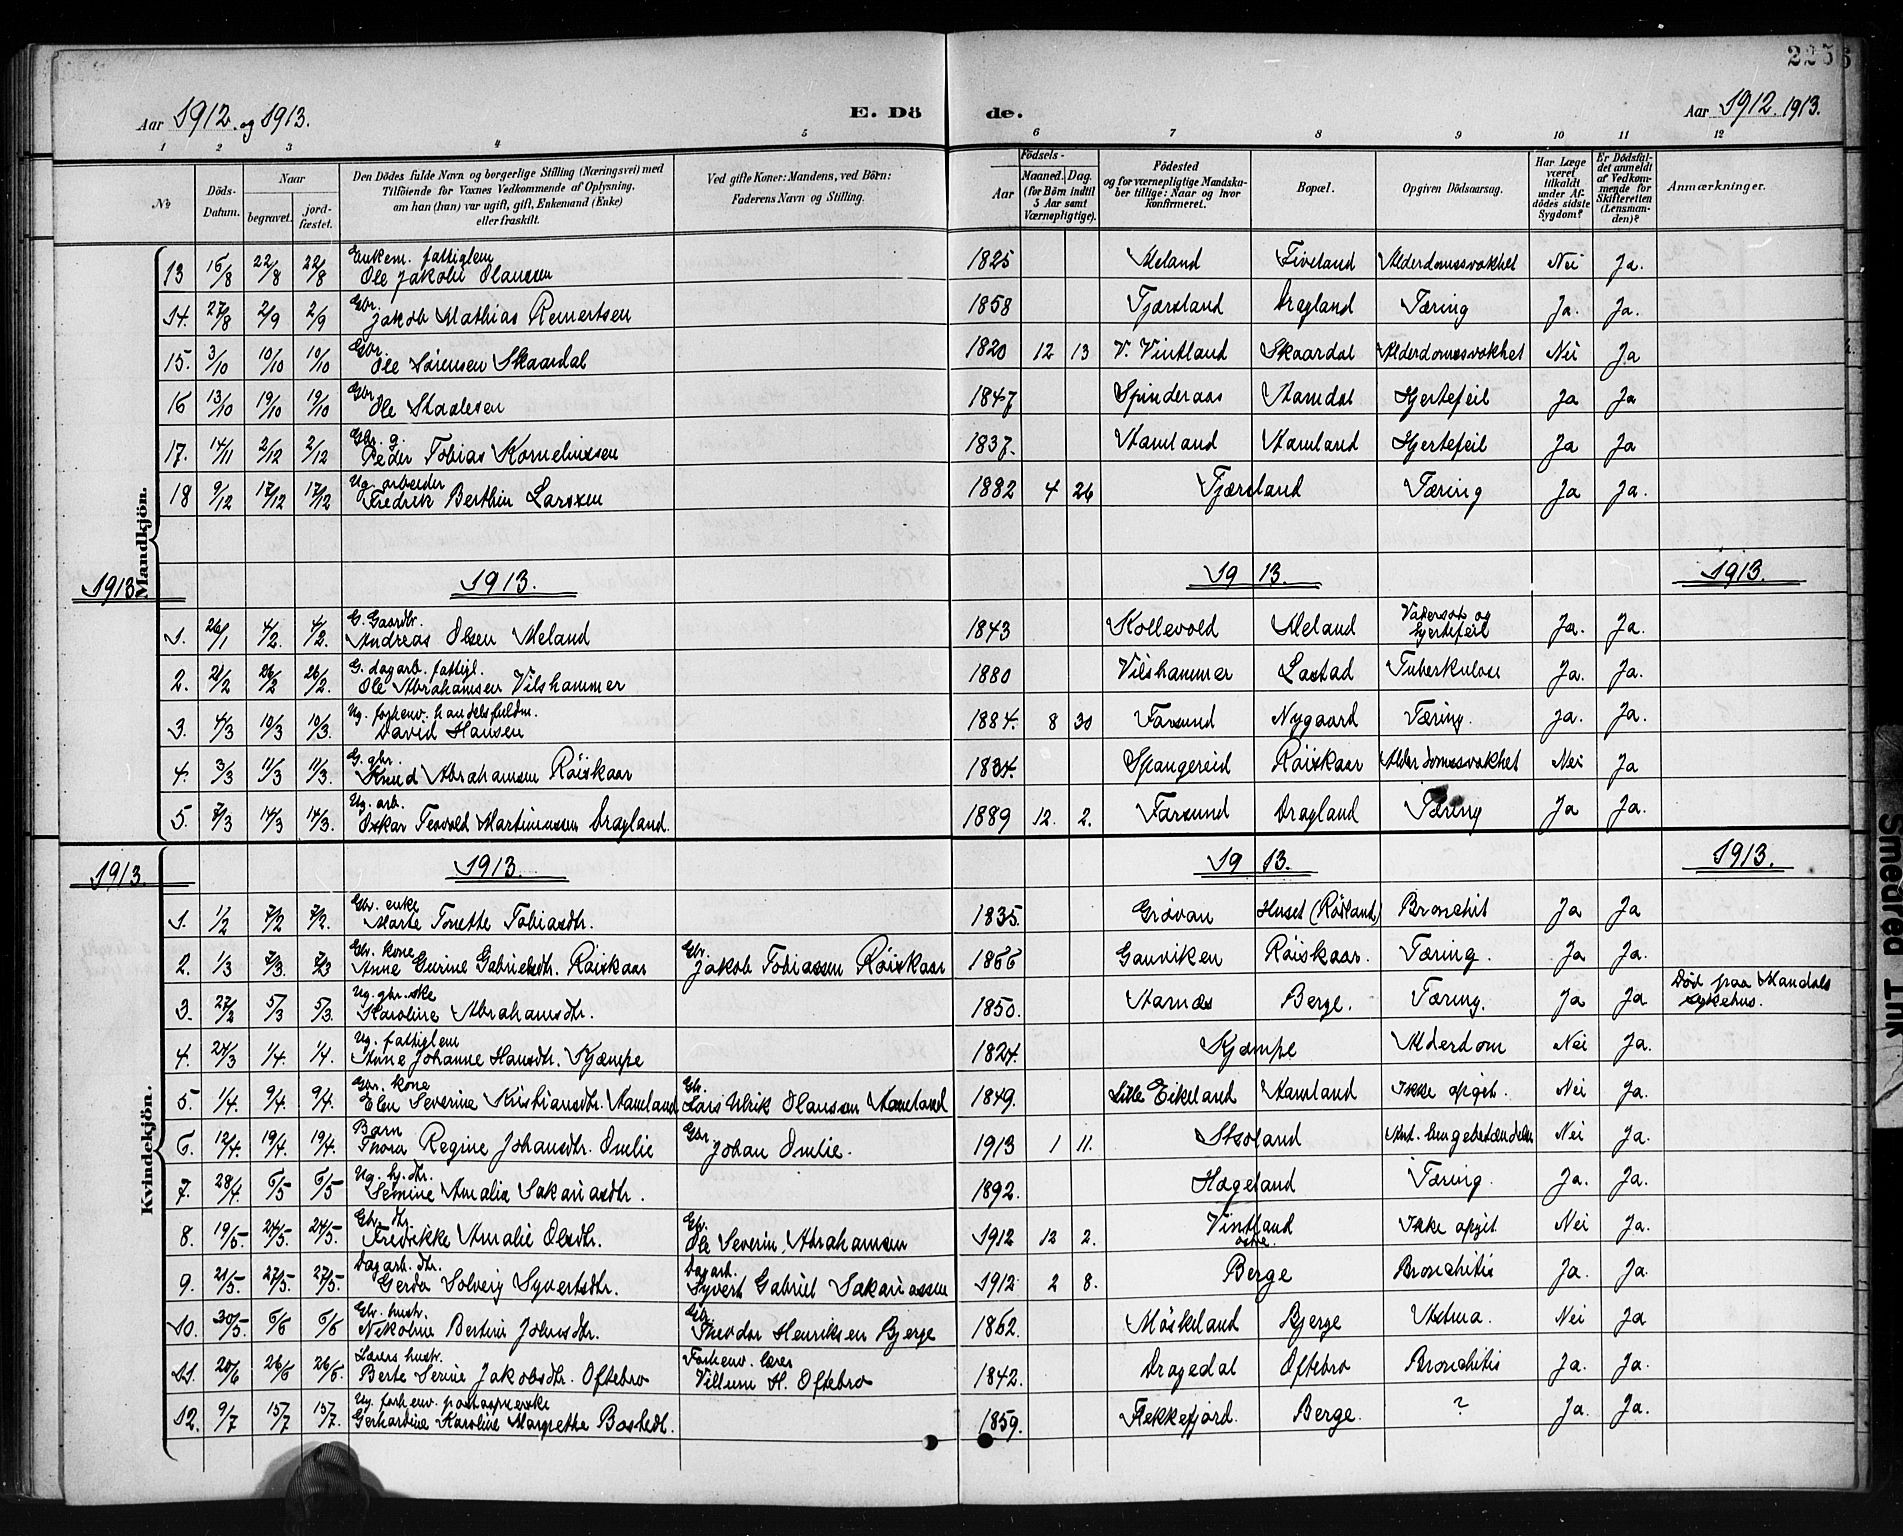 2256
Aar 1912. og 1913.
E. Dö de.
Aar 1912. 1913.
1 2 3 4 5 6 7 8 9 10 11 12
No
Döds-Datum.
Naar
begravet.
jord-fæstet.
Den Dödes fulde Navn og borgerlige Stilling (Næringsvei) med
Tilföiende for Voxnes Vedkommende af Oplysning,
om han (hun) var ugift, gift, Enkemand (Enke)
eller fraskilt.
Ved gifte Koner: Mandens, ved Börn:
Faderens Navn og Stilling.
Födsels-
Aar
Maaned. Dag.
(for Börn indtil
5 Aar samt
Værnepligtige).
Födested
og for værnepligtige Mandska-
ber tillige: Naar og hvor
konfirmeret.
Bopæl.
Opgiven Dödsaarsag.
Har Læge
været
tilkaldt
under Af-
dödes sidste
Sygdom?
Er Dödsfal-
det anmeldt
af Vedkom-
mende for
Skifteretten
(Lensman-
den)?
Anmærkninger.
Mandkjön.
13 15/8 22/8 22/8 Enkem. fattiglem Ole Jakobu Olaussen 1825 Meland Fiveland Alderdomssvakhet Nei Ja.
14. 27/8 2/9 2/9 Gbr. Jakob Mathias Reinertsen 1858 Tjørsland Dragland Tæring Ja. Ja.
15. 3/10 10/10 10/10 Gbr. Ole Sørensen Skaardal 1820 12 13 V. Vintland Skaardal Alderdomssvakhet Nei Ja
16 13/10 19/10 19/10 Gbr Ole Staalesen 1847 Spinderaas Aamdal Hjertefeil Ja Ja
17. 14/11 2/12 2/12 Gbr. g. Peder Tobias Korneliussen 1837. Aamland Aamland Hjertefeil Ja Ja
18 9/12 17/12 17/12 Ug. arbeider Fredrik Berthin Larssen 1882 4 26 Tjørsland Tæring Ja Ja.
1913 1913. 1913. 1913.
1. 26/1 4/2. 4/2. G. Gaardbr. Andreas Olsen Meland 1843 Kollevold Meland Vatersot og Hjertefeil Ja. Ja.
2. 21/2 26/2 26/2. G. dagarb. fattigl. Ole Abrahamsen Vilshammer 1880 Vilshammer Lastad Tuberkulose Ja. Ja.
3. 4/3 10/3 10/3. Ug. forhenv. handelsfuldm. David Hansen 1884. 8 30 Farsund Nygaard Tæring. Ja. Ja.
4. 3/3 11/3 11/3. G. gbr. Knud Abrahamsen Røiskaar 1834. Spangereid Røiskaar Alderdomssvakhet Nei Ja
5. 7/3 14/3 14/3. Ug. arb. Oskar Teovold Martinussen Dragland. 1889 12. 2. Farsund Dragland Tæring Ja Ja.
Kvindekjön.
1913. 1913. 1913. 1913.
1. 1/2 7/2 7/2. Gbr. enke Marte Tonette Tobiasdtr. 1835. Grøvan Huset (Røsland) Bronchit Ja Ja
2. 1/3 7/3. 7/3 Gbr. kone Anne Gurine Gabrielsdtr. Røiskaar Gbr. Jakob Tobiassen Røiskaar 1866 Gauviken Røiskaar. Tæring. Ja Ja.
3. 27/2 5/3 5/3. Ug. gbr.ske Karoline Abrahamsdtr. 1850. Aarnæs Berge. Tæring. Ja Ja Død paa Mandals sykehus.
4. 24/3 1/4. 1/4. Ug. fattiglem Anne Johanne Hansdtr. Kjæmpe 1824. Kjæmpe Alderdom Nei Ja.
5. 1/4. 9/4. 9/4. Gbr. kone Elen Severine Kristiansdtr. Aamland Gbr. Lars Ulrik Olausen Aamland 1849. Lille Eikeland Aamland Ikke opgit. Nei Ja.
6. 12/4. 19/4. 19/4. Barn Thora Regine Johansdtr. Omlie Gbr. Johan Omlie. 1913 1 11. Stsoland Ant. lungebetændelse Nei Ja.
7. 28/4. 6/5 6/5 Ug. hj. dtr. Semine Amalia Sakariasdtr. 1892. Hageland Tæring. Ja. Ja.
8. 19/5. 24/5. 24/5. Gbr. dtr. Fredrikke Amalie Olsdtr. Gbr. Ole Severin Abrahamsen 1912 12 2. Vintland østre. Ikke opgit Nei Ja.
9. 21/5. 27/5. 27/5. Dagarb. dtr. Gerda Solveig Syvertsdtr. Dagarb. Syvert Gabriel Sakariassen 1912 2 8. Berge Bronchitis Ja. Ja.
10. 30/5. 6/6 6/6 Gbr. hustr. Nikoline Bertine Johnsdtr. Gbr. Theodor Henriksen Bjerge 1862. Møskeland Bjerge Astma. Nei Ja
11. 20/6 26/6 26/6. Lærers hustr. Berte Serine Jakobsdtr. Oftebro Forhenv. lærer Villum H. Oftebro 1842. Dragedal Oftebro Bronchitis Ja. Ja.
12. 9/7 15/7 15/7. Ug. forhenv. postaapnerske Gerhardine Karoline Margrethe Bostedt. 1859. Flekkefjord. Berge. ? Ja. Ja.
Smedred Trik